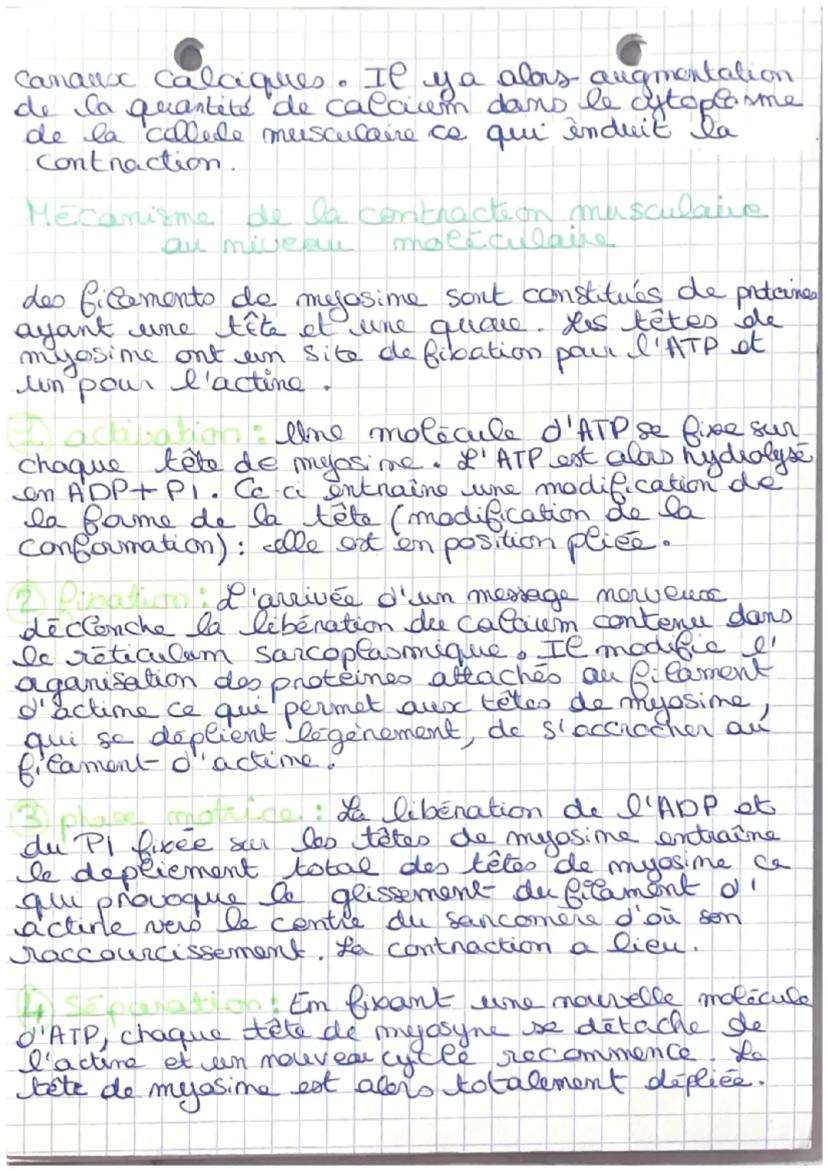 canaux calciques. Il y a alors augmentation
de la quantité de calcium dans le cytoplasme
de la cellule musculaire ce qui induit la
contraction.
Mécanisme de la contraction musculaire
au niveau moléculaire
des filaments de myosine sont constitués de protéines
ayant une tête et une queue. Les têtes de
myosine ont un site de fixation pour l'ATP et
un pour l'actine.
① activation : Une molécule d'ATP se fixe sur
chaque tête de myosine. L'ATP est alors hydrolysé
en ADP + Pi. Ce ci entraîne une modification de
la forme de la tête (modification de la
conformation) : elle est en position pliée.
② fixation : L'arrivée d'un message nerveux
déclenche la libération du calcium contenu dans
le réticulum sarcoplasmique. Il modifie l'
aganisation des protéines attachés au filament
d'actine ce qui permet aux têtes de myosine,
qui se déplient légèrement, de s'accrocher au
filament d'actine.
③ phase motrice : La libération de l'ADP et
du Pi fixée sur les têtes de myosine entraîne
le dépliement total des têtes de myosine ce
qui provoque le glissement du filament d'
actine vers le centre du sarcomère d'où son
raccourcissement. La contraction a lieu.
④ Séparation : En fixant une nouvelle molécule
d'ATP, chaque tête de myosyne se détache de
l'actine et un nouveau cycle recommence. La
tête de myosine est alors totalement dépliée.